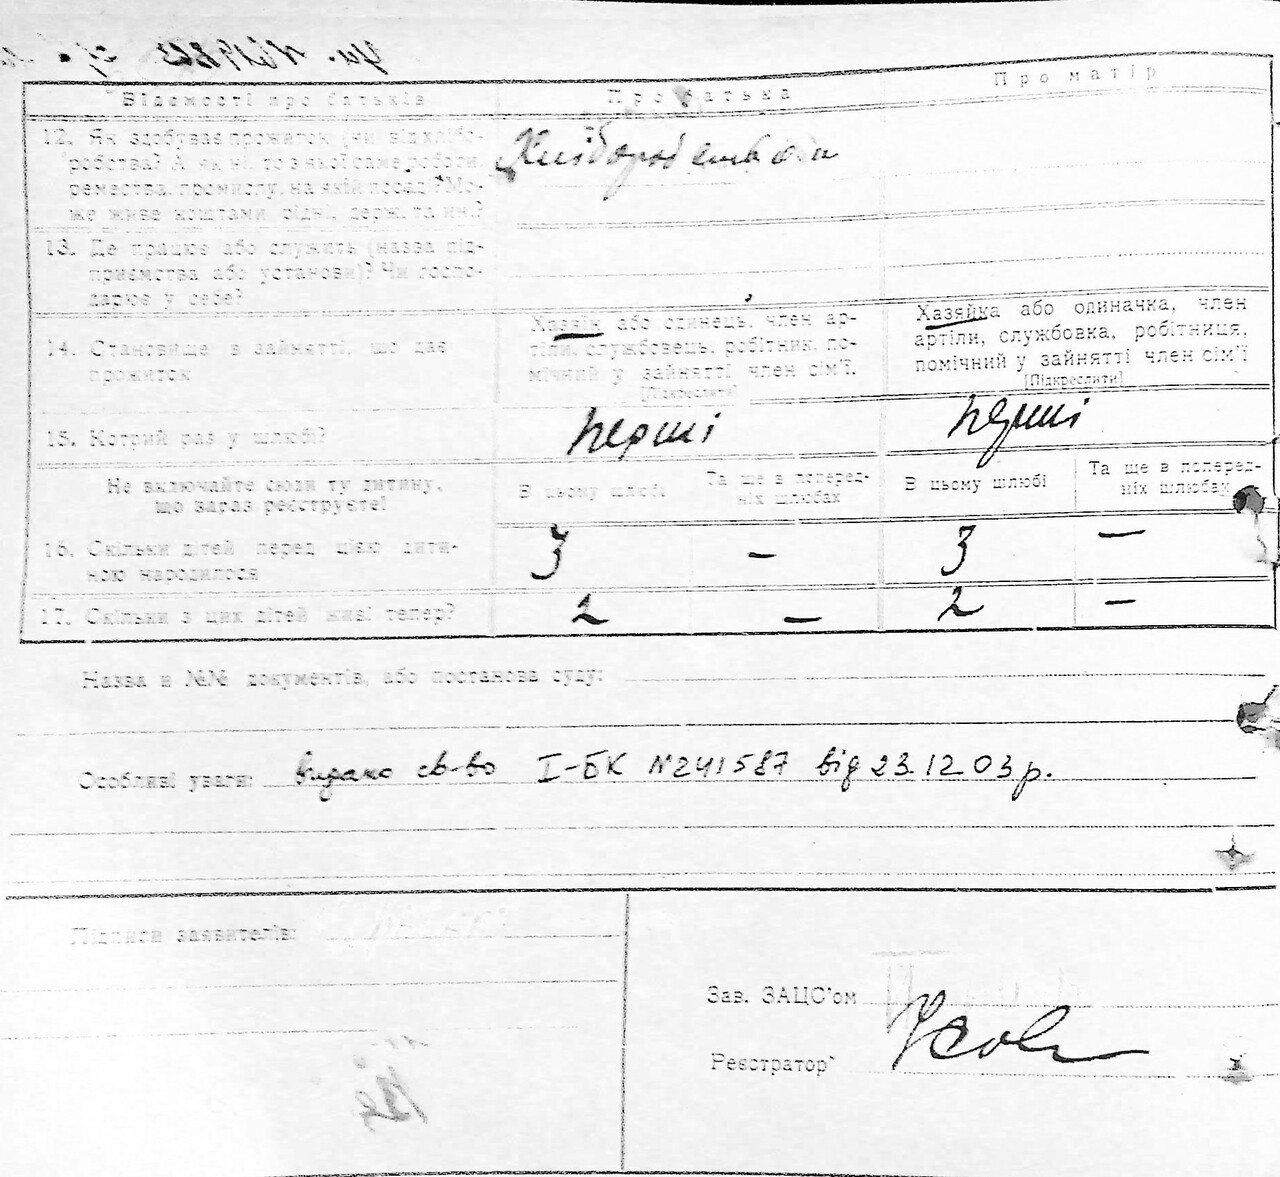 Відомості про батьків
Про батька
Про матір
12. Як здобуває прожиток (чи від хлібо-
робства? А як ні, то з якої саме роботи,
ремества, промислу, на якій посаді? Мо-
же живе коштами рідні, держ. та ин.?
13. Де працює або служить (назва під-
приємства або установи)? Чи госпо-
дарює у себе?
14. Становище в зайнятті, що дає
прожиток
Хазяїн або одинець, член ар-
тіли, службовець, робітник, по-
мічний у зайнятті член сім'ї.
[Підкреслити]
Хазяйка або одиначка, член
артіли, службовка, робітниця,
помічний у зайнятті член сім'ї
[Підкреслити]
15. Котрий раз у шлюбі?
перші
перші
Не включайте сюди ту дитину,
що зараз реєструєте!
В цьому шлюбі
Та ще в поперед-
ніх шлюбах
В цьому шлюбі
Та ще в поперед-
ніх шлюбах
16. Скільки дітей перед цією дити-
ною народилося
3 — 3 —
17. Скільки з цих дітей живі тепер?
2 — 2 —
Назва и №№ документів, або постанова суду:
Особливі уваги: видано св-во І-БК №241587 від 23.12.03р.
Підписи заявителів:
Зав. ЗАЦС'ом
Реєстратор